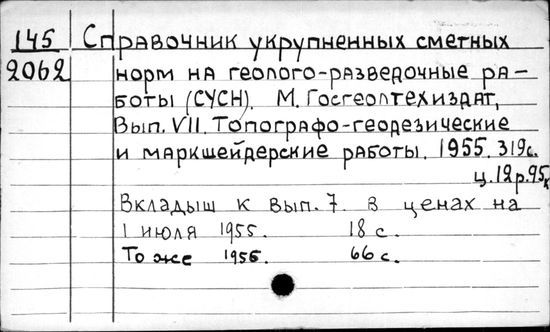 145 Справочник укрупненных сметных
2062 норм на геолого-разведочные ра-
боты (СУСН). М. Госгеолтехиздат,
Вып. VII. Топографо-геодезические
и маркшейдерские работы. 1955. 319с.
ц. 12р.95к
Вкладыш к вып. 7. В ценах на
1 июля 1955. 18 с.
То же 1956. 66 с.